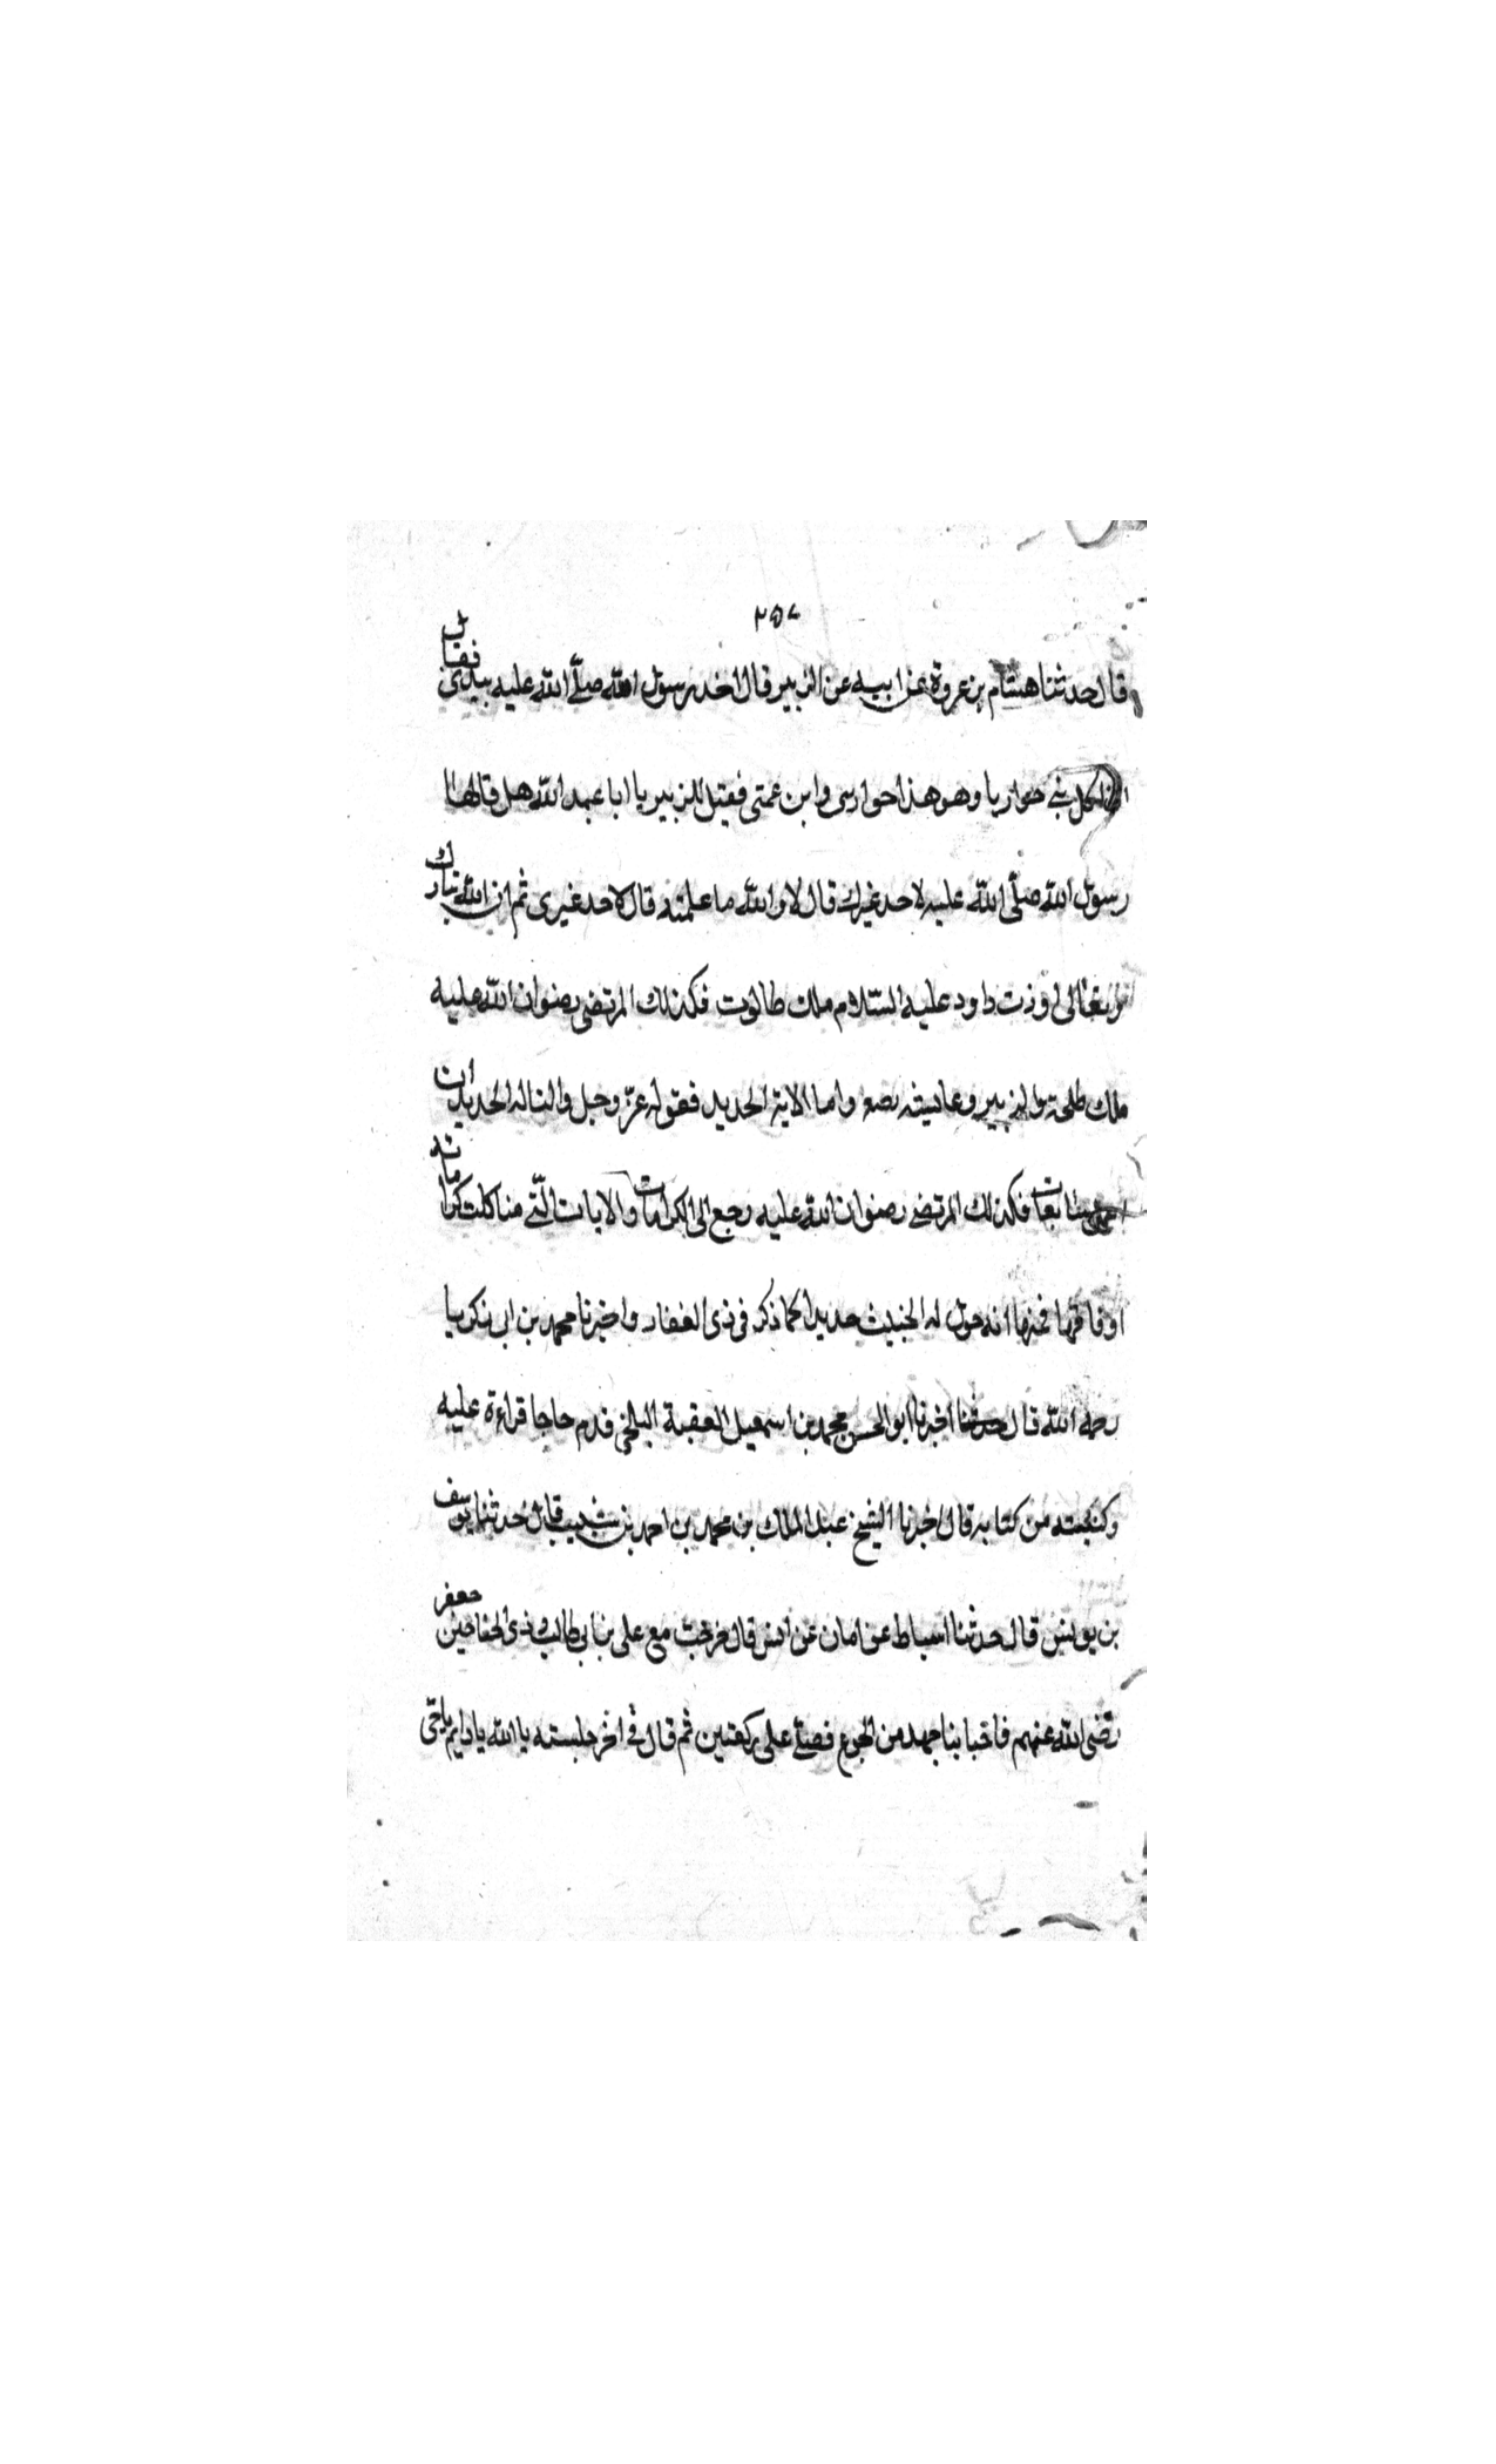 ٢٥٧
قال حدثنا هشام بن عروة عن ابيه عن الزبير قال اخذ رسول الله صلّى الله عليه بيدى فقال
لكل نبى حواريا وهو هذا حوارى وابن عمتى فقيل للزبير يا ابا عبد الله هل قالها
رسول الله صلّى الله عليه لاحد غيرك قال لا والله ما علمته قال لاحد غيرى ثم ان الله تبارك
وتعالى اورث داود عليه السّلام ملك طالوت فكذلك المرتضى رضوان الله عليه
ملك طلحة والزبير وعايشه واما الاية الحديد فقوله عزّ وجل والنا له الحديد ان
اعمل سابغات فكذلك المرتضى رضوان الله عليه رجع الى الكرامات والايات الّتى
او فاقها فمنها انه حول له الخبيث حديدا كما ذكر فى ذى الفقار واخبرنا محمد بن ابى زكريا
رحمه الله قال اخبرنا ابو الحسن محمد بن اسمعيل الفقية البلخى قدم حاجا قراءة عليه
وكتبته من كتابه قال اخبرنا الشيخ عبد الملك بن محمد بن احمد بن شبيب قال حدثنا يوسف
بن يونس قال حدثنا اسباط عن ابان عن انس قال خرجت مع على بن ابى طالب و جعفر ذى الجناحين
رضى الله عنهم فاصابنا جهد من الجوع فصلّى على ركعتين ثم قال فى اخر جلسته يا الله يا دايم يا حى